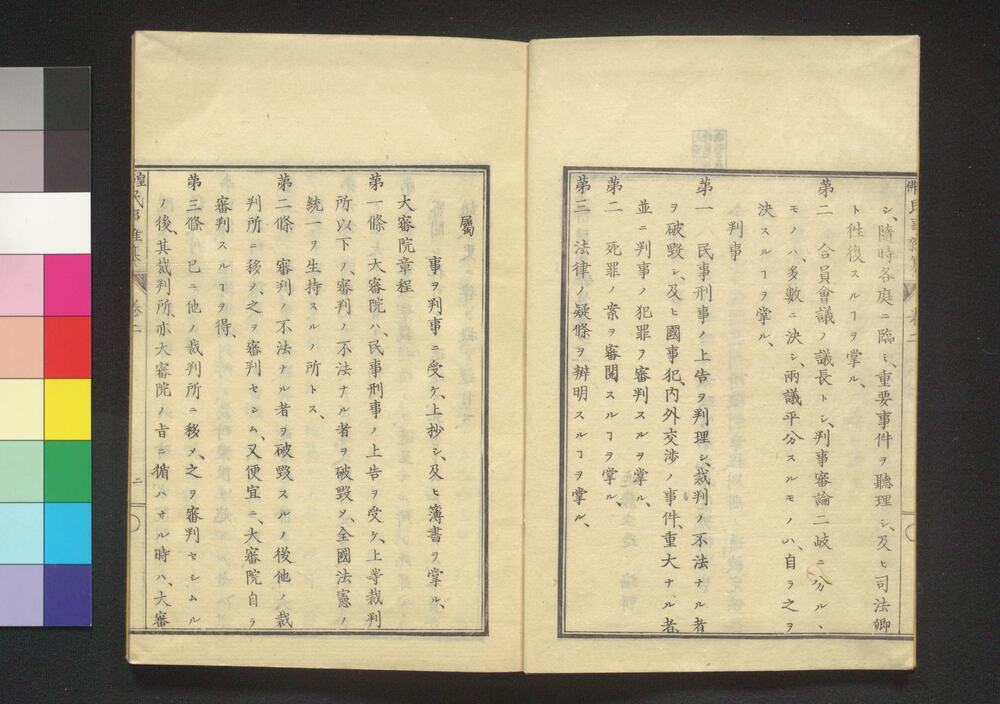 シ、隨時各庭ニ臨ミ、重要事件ヲ聽理シ、及ヒ司法卿
ト徃復スルヿヲ掌ル、
第二　合員會議ノ議長トシ、判事審論二岐ニ分ル、
モノハ、多數ニ決シ、兩議平分スルモノハ、自ラ之ヲ
決スルヿヲ掌ル、
判事
第一　民事刑事ノ上告ヲ判理シ、裁判ノ不法ナル者
ヲ破毀シ、及ヒ國事犯、内外交渉ノ事件、重大ナル者、
並ニ判事ノ犯罪ヲ審判スルヲ掌ル、
第二　死罪ノ案ヲ審閲スルヿヲ掌ル、
第三　法律ノ疑條ヲ辨明スルヿヲ掌ル、
屬
事ヲ判事ニ受ケ、上抄シ、及ヒ簿書ヲ掌ル、
大審院章程
第一條　大審院ハ、民事刑事ノ上告ヲ受ケ、上等裁判
所以下ノ、審判ノ不法ナル者ヲ破毀シ、全國法憲ノ
統一ヲ主持スルノ所トス、
第二條　審判ノ不法ナル者ヲ破毀スルノ後他ノ裁
判所ニ移シ、之ヲ審判セシム、又便宜ニ、大審院自ラ
審判スルヿヲ得、
第三條　已ニ他ノ裁判所ニ移シ、之ヲ審判セシムル
ノ後、其裁判所、亦大審院ノ旨ニ循ハサル時ハ、大審
卷二
二